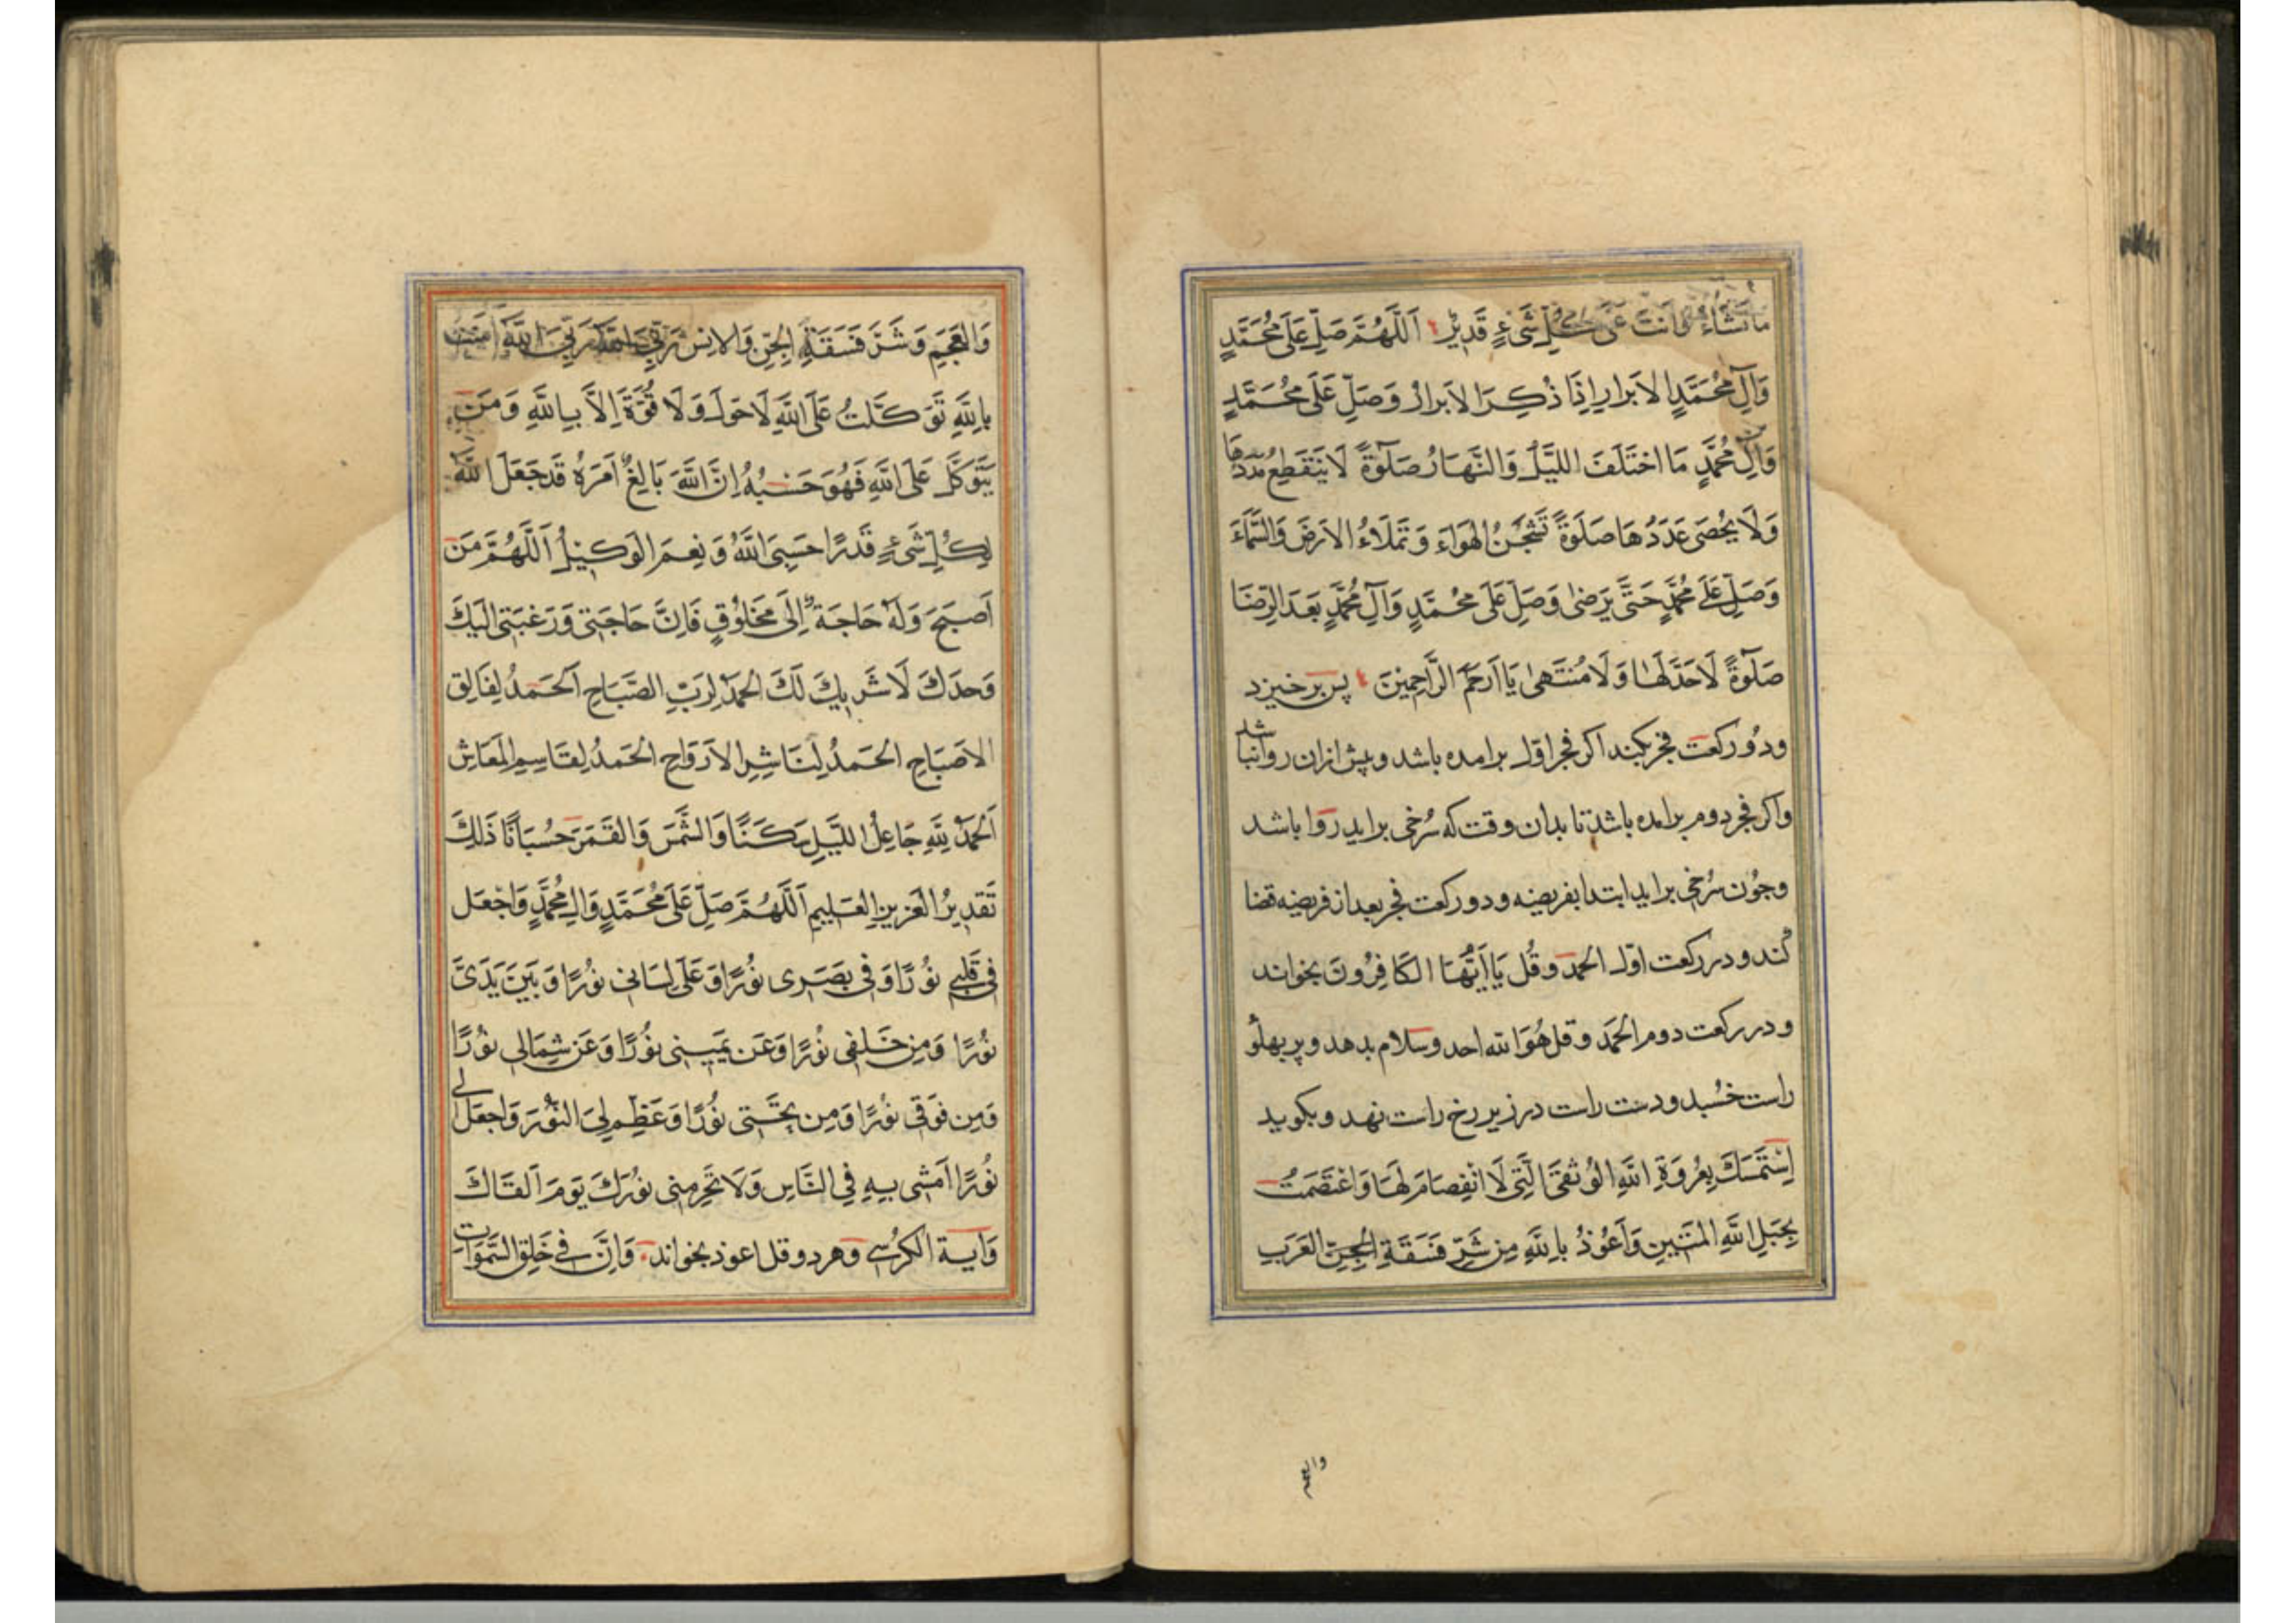 ما تشاء وانت على كل شیء قدیر اَللّهُمَّ صَلِّ عَلَى مُحَمَّدٍ
وَآلِ مُحَمَّدٍ الاَبرارِ اِذَا ذُكِرَ الاَبرارُ وَصَلِّ عَلَى مُحَمَّدٍ
وَآلِ مُحَمَّدٍ مَا اختَلَفَ اللَّيلُ وَالنَّهَارُ صَلوٰةً لَا يَنقَطِعُ مَدَدُهَا
وَلَا يُحْصَى عَدَدُهَا صَلَوةً تَشْحَنُ الهَوَاءَ وَتَملَاءُ الاَرضَ وَالسَّمَاءَ
وَصَلِّ عَلَى مُحَمَّدٍ حَتَّى يَرضىٰ وَصَلِّ عَلَى مُحَمَّدٍ وَآلِ مُحَمَّدٍ بَعدَ الرِّضَا
صَلوٰةً لَاحَدَّ لَهَا وَلَا مُنتَهىٰ يَا اَرحَمَ الرَّاحِمِينَ پس برخیزد
ودو رکعت فجر بکند اکر فجر اول برامده باشد وپیش ازان روا نباشد
واکر فجر دوم برامده باشد تا بدان وقت که سُرخی براید روا باشد
وچون سُرخی براید ابتدا بفریضه ودو رکعت فجر بعد از فریضه قضا
کند ودر رکعت اول الحمد وقُل يَا اَيُّهَا الكَافِرُونَ بخواند
ودر رکعت دوم الحَمد وقل هُوَ الله احد وسلام بدهد وبر پهلو
راست خسبد ودست راست در زیر رخ راست نهد وبکوید
اِسْتَمسَكتُ بِعُروَةِ اللهِ الوُثقَى الَّتِى لَا انْفِصَامَ لَهَا وَاعْتَصَمتُ
بِحَبلِ اللهِ المَتِينِ وَاَعُوْذُ بِاللهِ مِن شَرِّ فَسَقَةِ العَرَبِ
والعجم
وَالعَجَمِ وَشَرِّ فَسَقَةِ الجِنِّ وَالاِنسِ رَبِّىَ اللهُ رَبِّىَ اللهُ امنت
بِاللهِ تَوَكَّلتُ عَلَى اللهِ لَا حَولَ وَلَا قُوَّةَ اِلَّا بِاللهِ وَمَن
يَتَوَكَّل عَلَى اللهِ فَهُوَ حَسبُهُ اِنَّ اللهَ بَالِغُ اَمرِهِ قَد جَعَلَ اللهُ
لِكُلِّ شَىءٍ قَدرًا حَسبِىَ اللهُ وَنِعمَ الوَكِيلُ اَللّهُمَّ مَن
اَصبَحَ وَلَهُ حَاجَةٌ اِلَى مَخلُوقٍ فَاِنَّ حَاجَتِى وَرَغبَتِى اِلَيكَ
وَحدَكَ لَا شَرِيكَ لَكَ الحَمدُ لِرَبِّ الصَّبَاحِ اَلحَمدُ لِفَالِقِ
الاِصبَاحِ الحَمدُ لِنَاشِرِ الاَروَاحِ الحَمدُ لِقَاسِمِ المَعَاشِ
اَلحَمدُ لِلّهِ جَاعِلِ اللَّيلِ سَكَنًا وَالشَّمسَ وَالقَمَرَ حُسبَانًا ذَلِكَ
تَقدِيرُ العَزِيزِ العَلِيمِ اَللّهُمَّ صَلِّ عَلَى مُحَمَّدٍ وَالِ مُحَمَّدٍ وَاجعَل
فِى قَلبِى نُورًا وَفِى بَصَرِى نُورًا وَعَلَى لِسَانِى نُورًا وَبَينَ يَدَىَّ
نُورًا وَمِن خَلفِى نُورًا وَعَن يَمِينِى نُورًا وَعَن شِمَالِى نُورًا
وَمِن فَوقِى نُورًا وَمِن تَحتِى نُورًا وَعَظِّم لِىَ النُّورَ وَاجعَل لِى
نُورًا اَمشِى بِهِ فِى النَّاسِ وَلَا تَحرِمنِى نُورَكَ يَومَ اَلقَاكَ
وَآيَة الكُرسِى وهر دو قل اعوذ بخواند وَاِنَّ فِى خَلقِ السَّموَاتِ